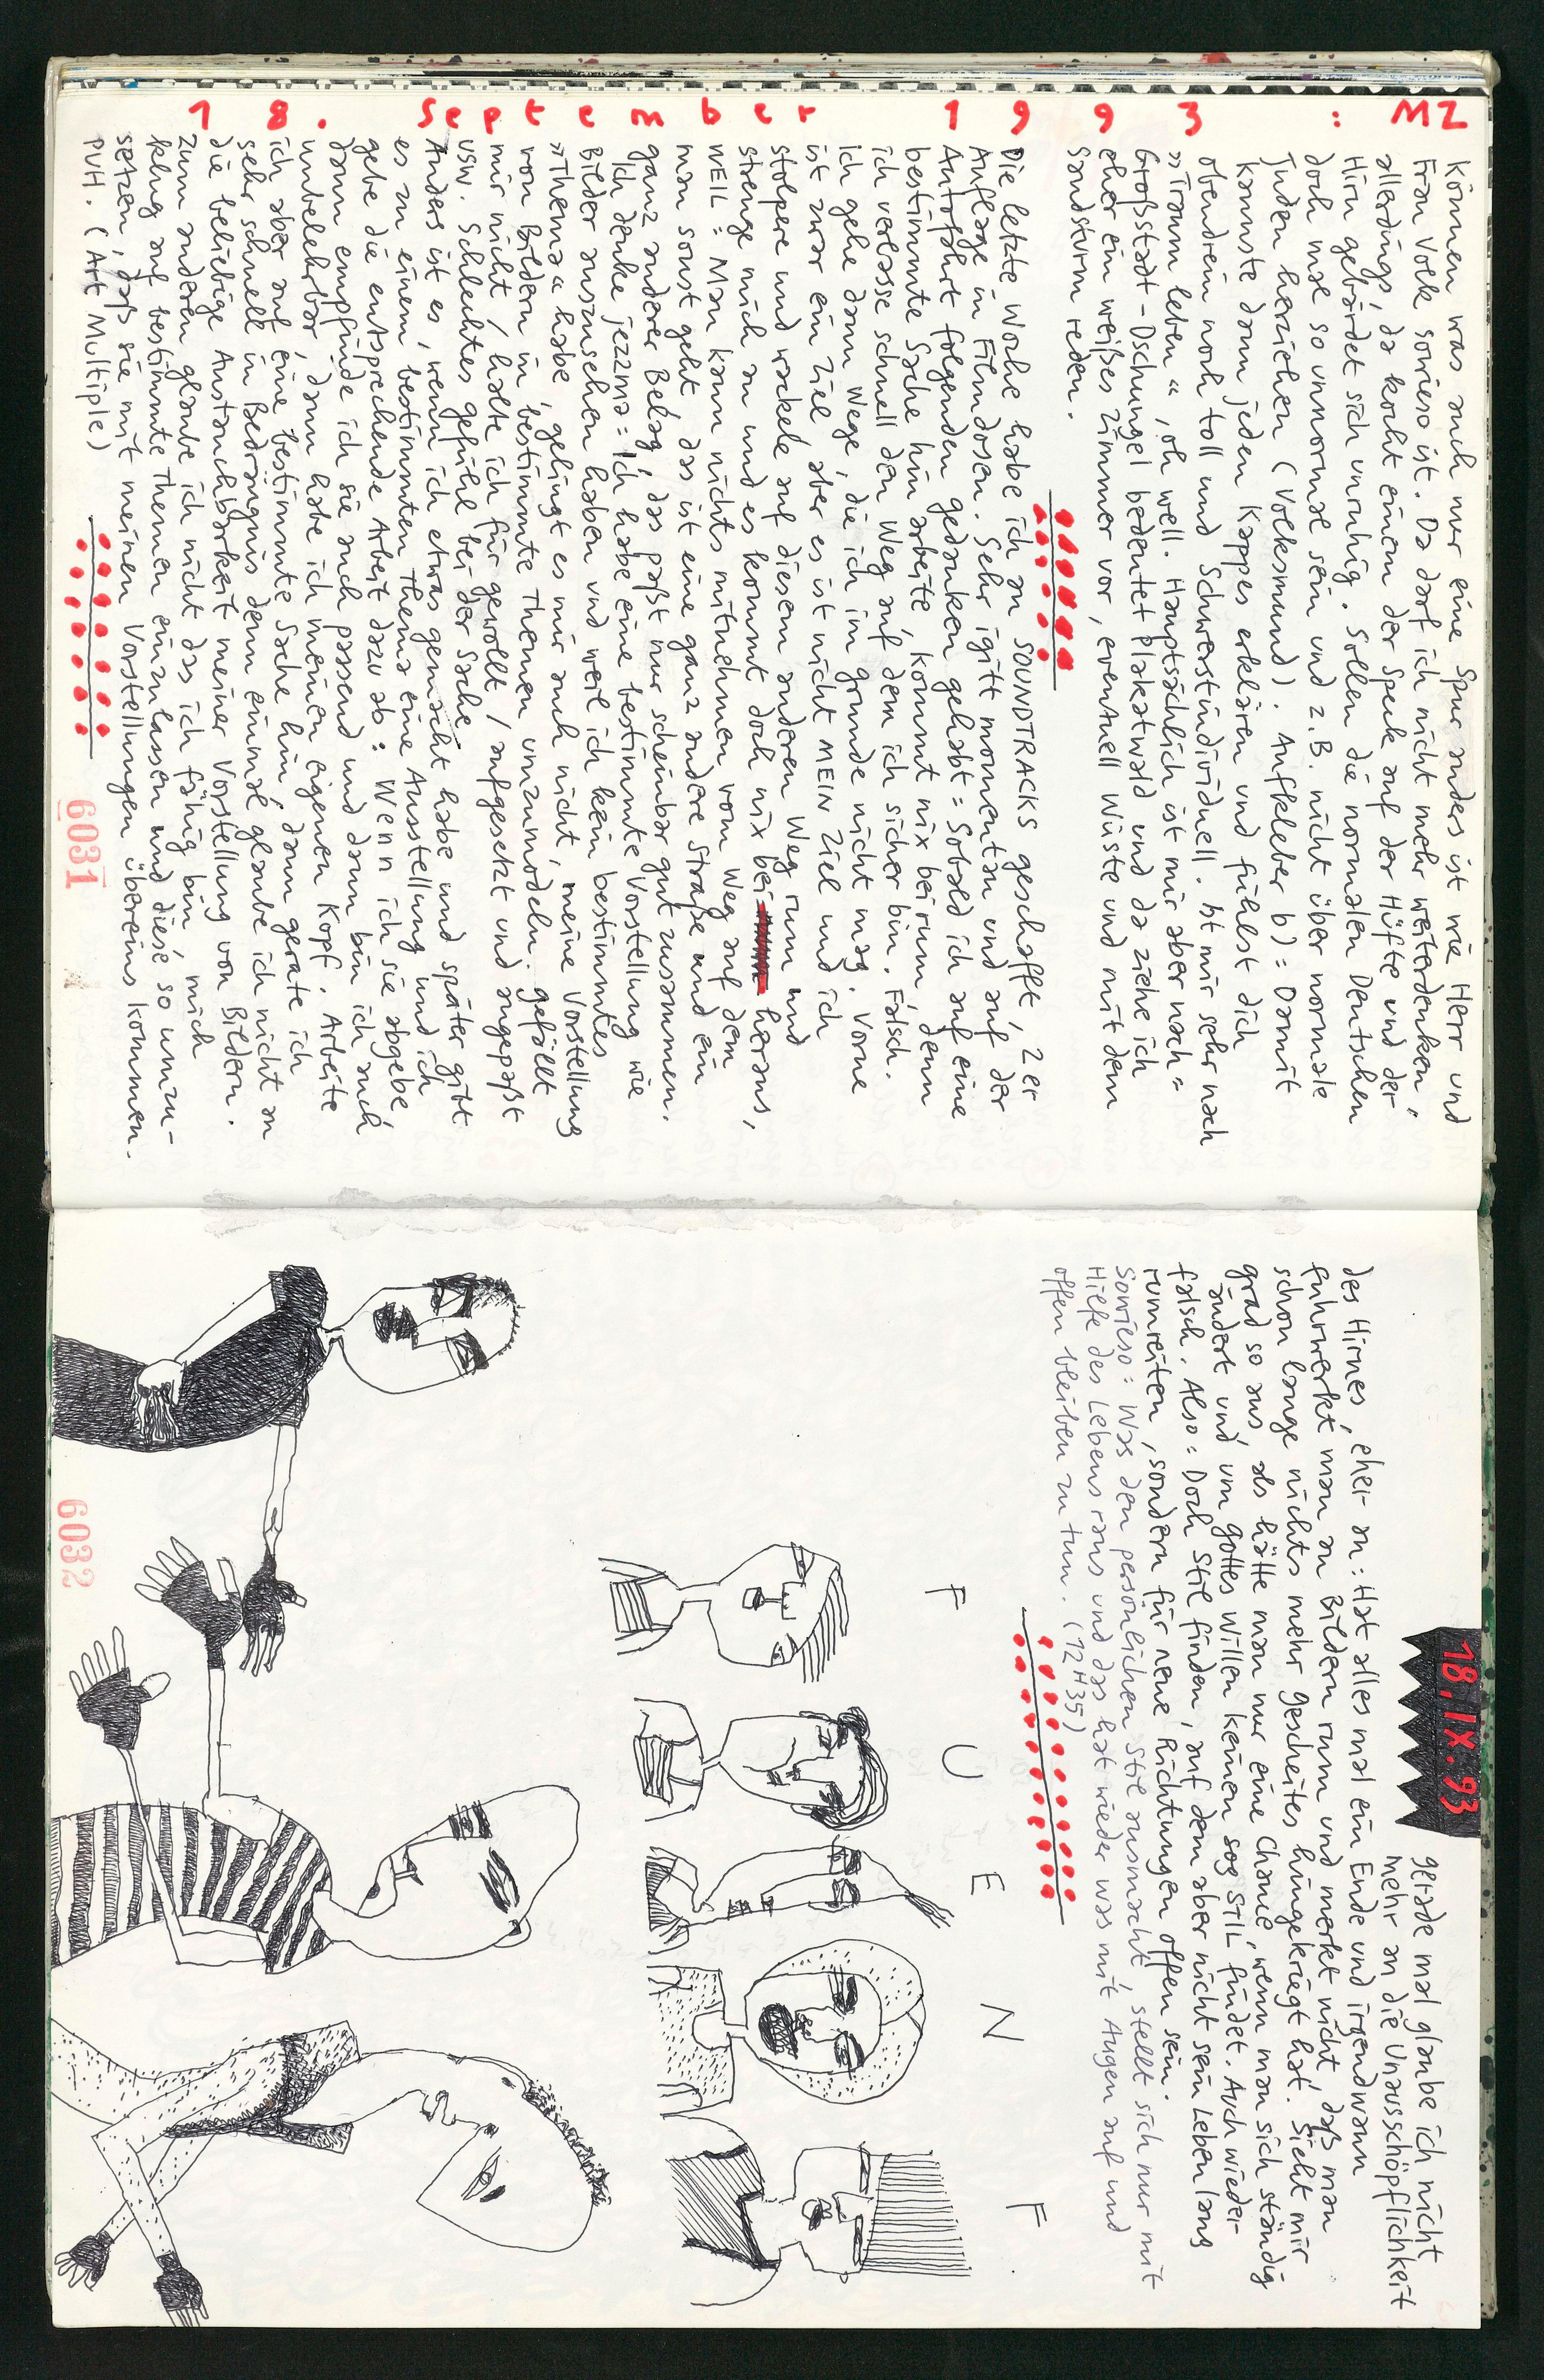 18. September 1993: MZ
können was auch nur eine Spur anders ist wie Herr und
Frau Volk sowieso ist. Da darf ich nicht mehr weiterdenken,
allerdings, da kocht einem der Speck auf der Hüfte und der
Hirn gebärdet sich unruhig. Sollen die normalen Deutschen
doch mal so unnormal sein und z.B. nicht über normale
Juden herziehen (Volksmund). Aufkleber b): Damit
kannste dann jeden Kappes erklären und fühlst dich
obendrein noch toll und schwerstindividuell. Ist mir sehr nach
»Traum leben«, oh well. Hauptsächlich ist mir aber nach =
Großstadt-Dschungel bedeutet Plakatwald und da ziehe ich
eher ein weißes Zimmer vor, eventuell Wüste und mit dem
Sandsturm reden.
Die letzte Woche habe ich an SOUNDTRACKS geschafft, 2er
Auflage in Filmdosen. Sehr igitt momentan und auf der
Autofahrt folgenden Gedanken gehabt: Sobald ich auf eine
bestimmte Sache hin arbeite, kommt nix bei rum, denn
ich verlasse schnell den Weg auf dem ich sicher bin. Falsch.
Ich gehe dann Wege, die ich im Grunde nicht mag. Vorne
ist zwar ein Ziel aber es ist nicht MEIN Ziel und ich
stolpere und wackele auf diesem anderen Weg rum und
strenge mich an und es kommt doch nix bei heraus,
WEIL: Man kann nichts mitnehmen vom Weg auf dem
man sonst geht, das ist eine ganz andere Straße und ein
ganz anderer Belag, das paßt nur scheinbar gut zusammen.
Ich denke jezzma: Ich habe eine bestimmte Vorstellung wie
Bilder auszusehen haben und weil ich kein bestimmtes
»Thema« habe, gelingt es mir auch nicht, meine Vorstellung
von Bildern in bestimmte Themen umzumodeln. Gefällt
mir nicht, halte ich für gewollt, aufgesetzt und angepaßt
usw. Schlechtes Gefühl bei der Sache.
Anders ist es, wenn ich etwas gemacht habe und später gibt
es zu einem bestimmten Thema eine Ausstellung und ich
gebe die entsprechende Arbeit dazu ab: Wenn ich sie abgebe,
dann empfinde ich sie auch passend und dann bin ich auch
unbelehrbar, dann habe ich meinen eigenen Kopf. Arbeite
ich aber auf eine bestimmte Sache hin, dann gerate ich
sehr schnell in Bedrängnis denn einmal glaube ich nicht an
die beliebige Austauschbarkeit meiner Vorstellung von Bildern.
Zum anderen glaube ich nicht das ich fähig bin, mich
klug auf bestimmte Themen einzulassen und diese so umzu-
setzen, daß sie mit meinen Vorstellungen übereins kommen.
PUH. (Art Multiple)
6031
18.IX.93
gerade mal glaube ich nicht
mehr an die Unausschöpflichkeit
des Hirnes, eher an: Hat alles mal ein Ende und irgendwann
fuhrwerkt man an Bildern rum und merkt nicht, daß man
schon lange nichts mehr gescheites hingekriegt hat. Sieht mir
grad so aus, als hätte man nur eine Chance, wenn man sich ständig
ändert und um Gottes willen keinen sog STIL findet. Auch wieder-
falsch. Also: Doch Stil finden, auf dem aber nicht sein Leben lang
rumreiten, sondern für neue Richtungen offen sein.
Sowieso: Was den persönlichen Stil ausmacht, stellt sich nur mit
Hilfe des Lebens raus und das hat wieder was mit Augen auf und
offen bleiben zu tun. (12H35)
F U E N F
6032